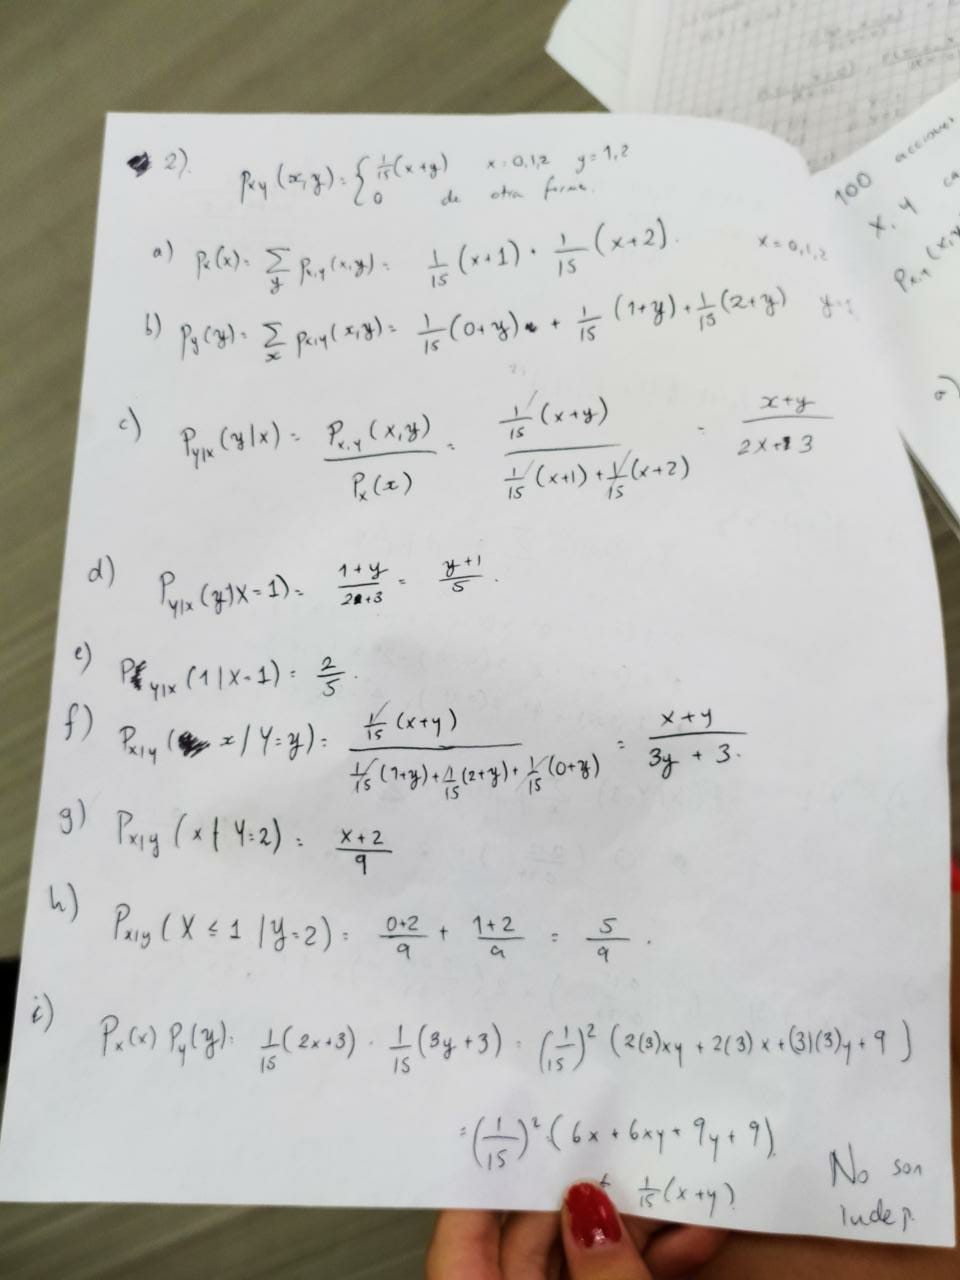 2).
p_{x,y}(x,y) = { 1/15 (x+y)   x=0,1,2   y=1,2
0   de otra forma.
a) p_x(x) = Σ_y p_{x,y}(x,y) = 1/15 (x+1) + 1/15 (x+2).   x=0,1,2
b) p_y(y) = Σ_x p_{x,y}(x,y) = 1/15 (0+y) + 1/15 (1+y) + 1/15 (2+y)
c) P_{Y|X}(y|x) = P_{x,y}(x,y) / P_x(x) = 1/15 (x+y) / (1/15 (x+1) + 1/15 (x+2)) = (x+y) / (2x+3)
d) P_{Y|X}(y|X=1) = (1+y) / (2+3) = (y+1) / 5.
e) P_{Y|X}(1|X=1) = 2/5.
f) P_{X|Y}(x|Y=y) = 1/15 (x+y) / (1/15 (1+y) + 1/15 (2+y) + 1/15 (0+y)) = (x+y) / (3y+3).
g) P_{X|Y}(x|Y=2) = (x+2) / 9
h) P_{X|Y}(X≤1|Y=2) = (0+2)/9 + (1+2)/9 = 5/9.
i) P_x(x) P_y(y) = 1/15 (2x+3) · 1/15 (3y+3) = (1/15)² (2(3)xy + 2(3)x + (3)(3)y + 9)
= (1/15)² · (6x + 6xy + 9y + 9)
≠ 1/15 (x+y)
No son
indep.
100 acciones
X, Y